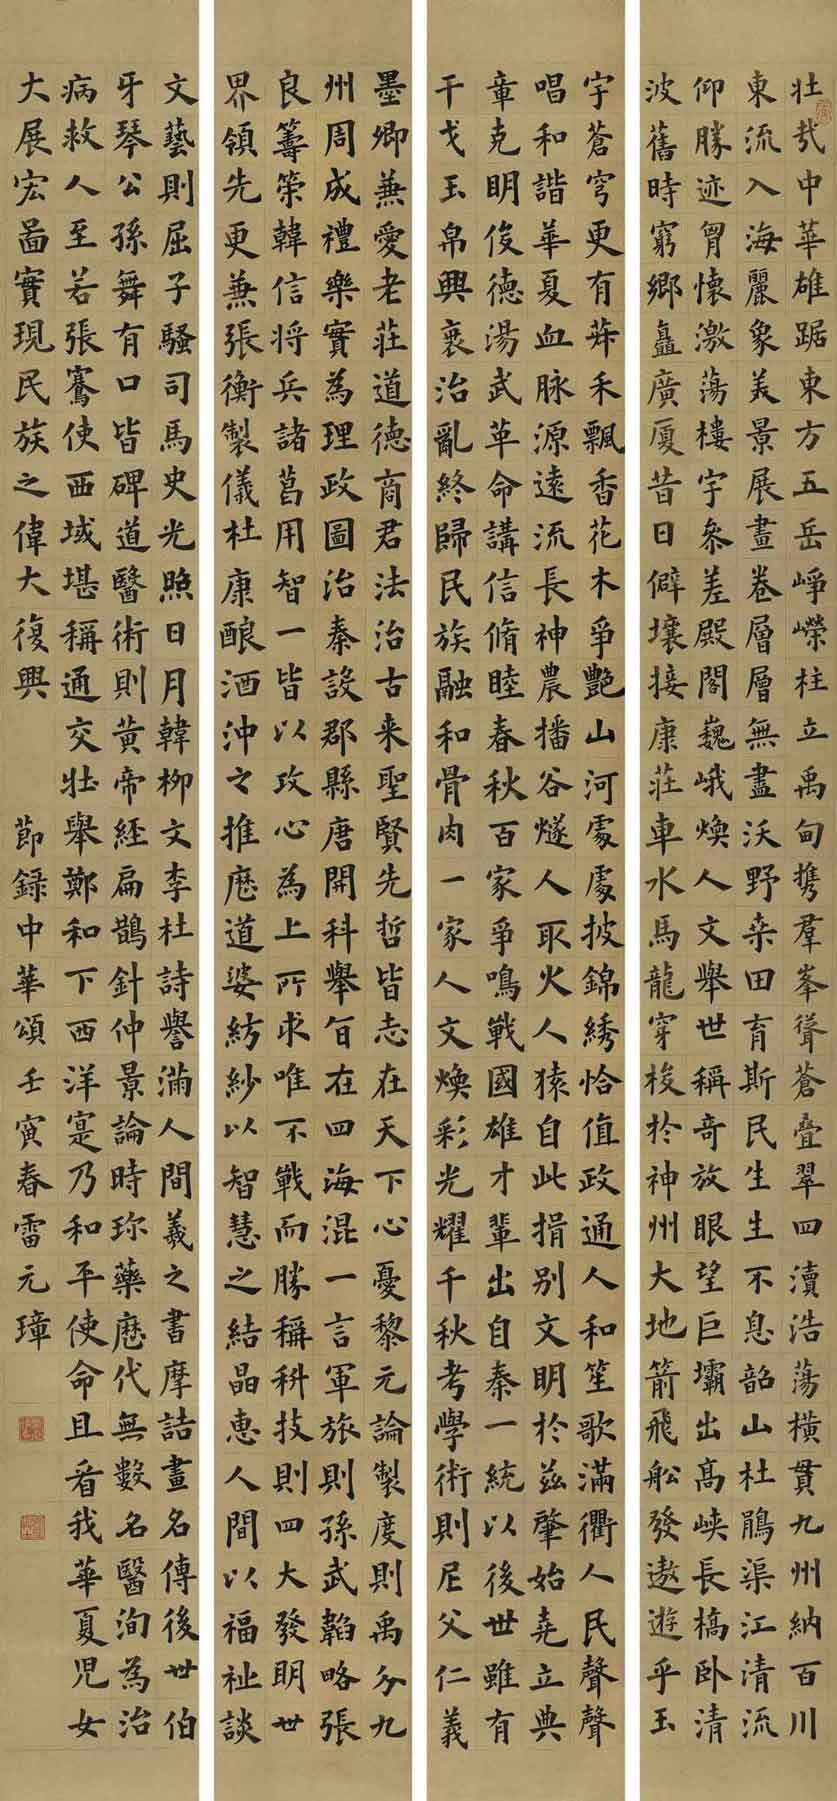 壯哉中華雄踞東方五岳崢嶸柱立禹甸攜羣峯聳蒼疊翠四瀆浩蕩橫貫九州納百川
東流入海麗象美景展畫卷層層無盡沃野桒田育斯民生生不息韶山杜鵑渠江清流
仰勝迹胷懷激蕩樓宇叅差殿閣巍峨煥人文舉世稱奇放眼望巨壩出高峽長橋卧清
波舊時窮鄉矗廣廈昔日僻壤接康莊車水馬龍穿梭於神州大地箭飛船發遨遊乎玉
宇蒼穹更有莽禾飄香花木爭艷山河處處披錦綉恰值政通人和笙歌滿衢人民聲聲
唱和諧華夏血脉源遠流長神農播谷燧人取火人猿自此揖别文明於兹肇始堯立典
章克明俊德湯武革命講信脩睦春秋百家爭鳴戰國雄才輩出自秦一統以後世雖有
干戈玉帛興衰治亂終歸民族融和骨肉一家人文煥彩光耀千秋考學術則尼父仁義
墨卿兼愛老莊道德商君法治古来聖賢先哲皆志在天下心憂黎元論製度則禹分九
州周成禮樂實為理政圖治秦設郡縣唐開科舉旨在四海混一言軍旅則孫武韜略張
良籌策韓信将兵諸葛用智一皆以攻心為上所求唯不戰而勝稱科技則四大發明世
界領先更兼張衡製儀杜康釀酒沖之推曆道婆紡紗以智慧之結晶惠人間以福祉談
文藝則屈子騷司馬史光照日月韓柳文李杜詩譽滿人間羲之書摩詰畫名傳後世伯
牙琴公孫舞有口皆碑道醫術則黃帝經扁鵲針仲景論時珍藥歷代無數名醫洵為治
病救人至若張騫使西域堪稱通交壯舉鄭和下西洋寔乃和平使命且看我華夏児女
大展宏啚實現民族之偉大復興 節録中華頌壬寅春雷元璋